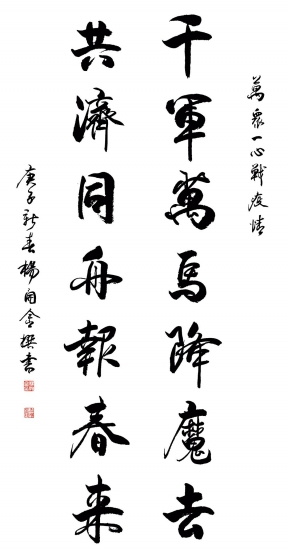 萬眾一心戰疫情
千軍萬馬降魔去
共濟同舟報春来
庚子新春楊自會撰書